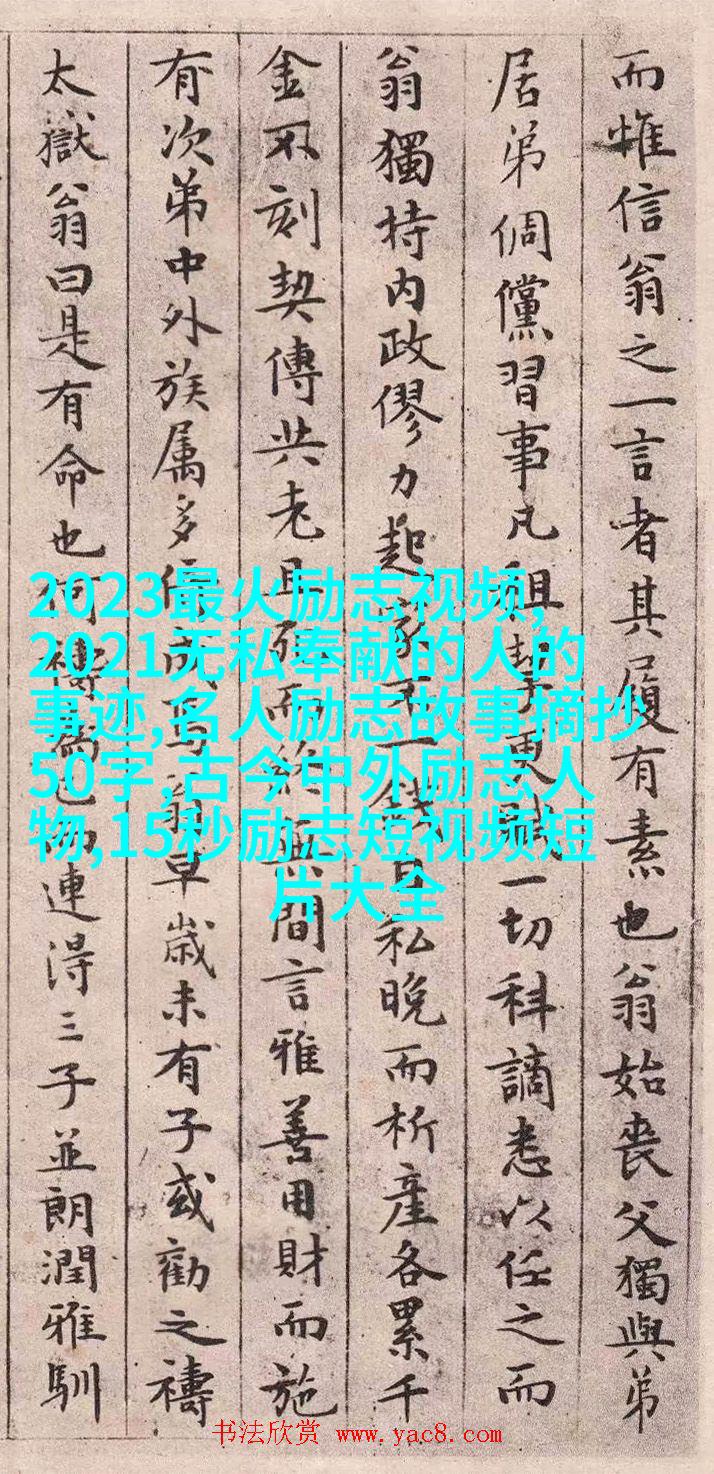 而惟信翁之一言者其履有素也翁始喪父獨與弟
居弟倜儻習事凡租挈更賦一切科謫悉以任之而
翁獨持内政僇力起家不一錢自私晚而析產各累千
金不刻契傳共老且死而終無間言雅善用財而施
有次弟中外族属多倚成焉翁早歲未有子或勸之禱
太嶽翁曰是有命也何禱為已而連得三子並朗潤雅馴
2023最火励志视频,
2021无私奉献的人的
事迹,名人励志故事摘抄
50字,古今中外励志人
物,15秒励志短视频短
片大全
书法欣赏 www.yac8.com